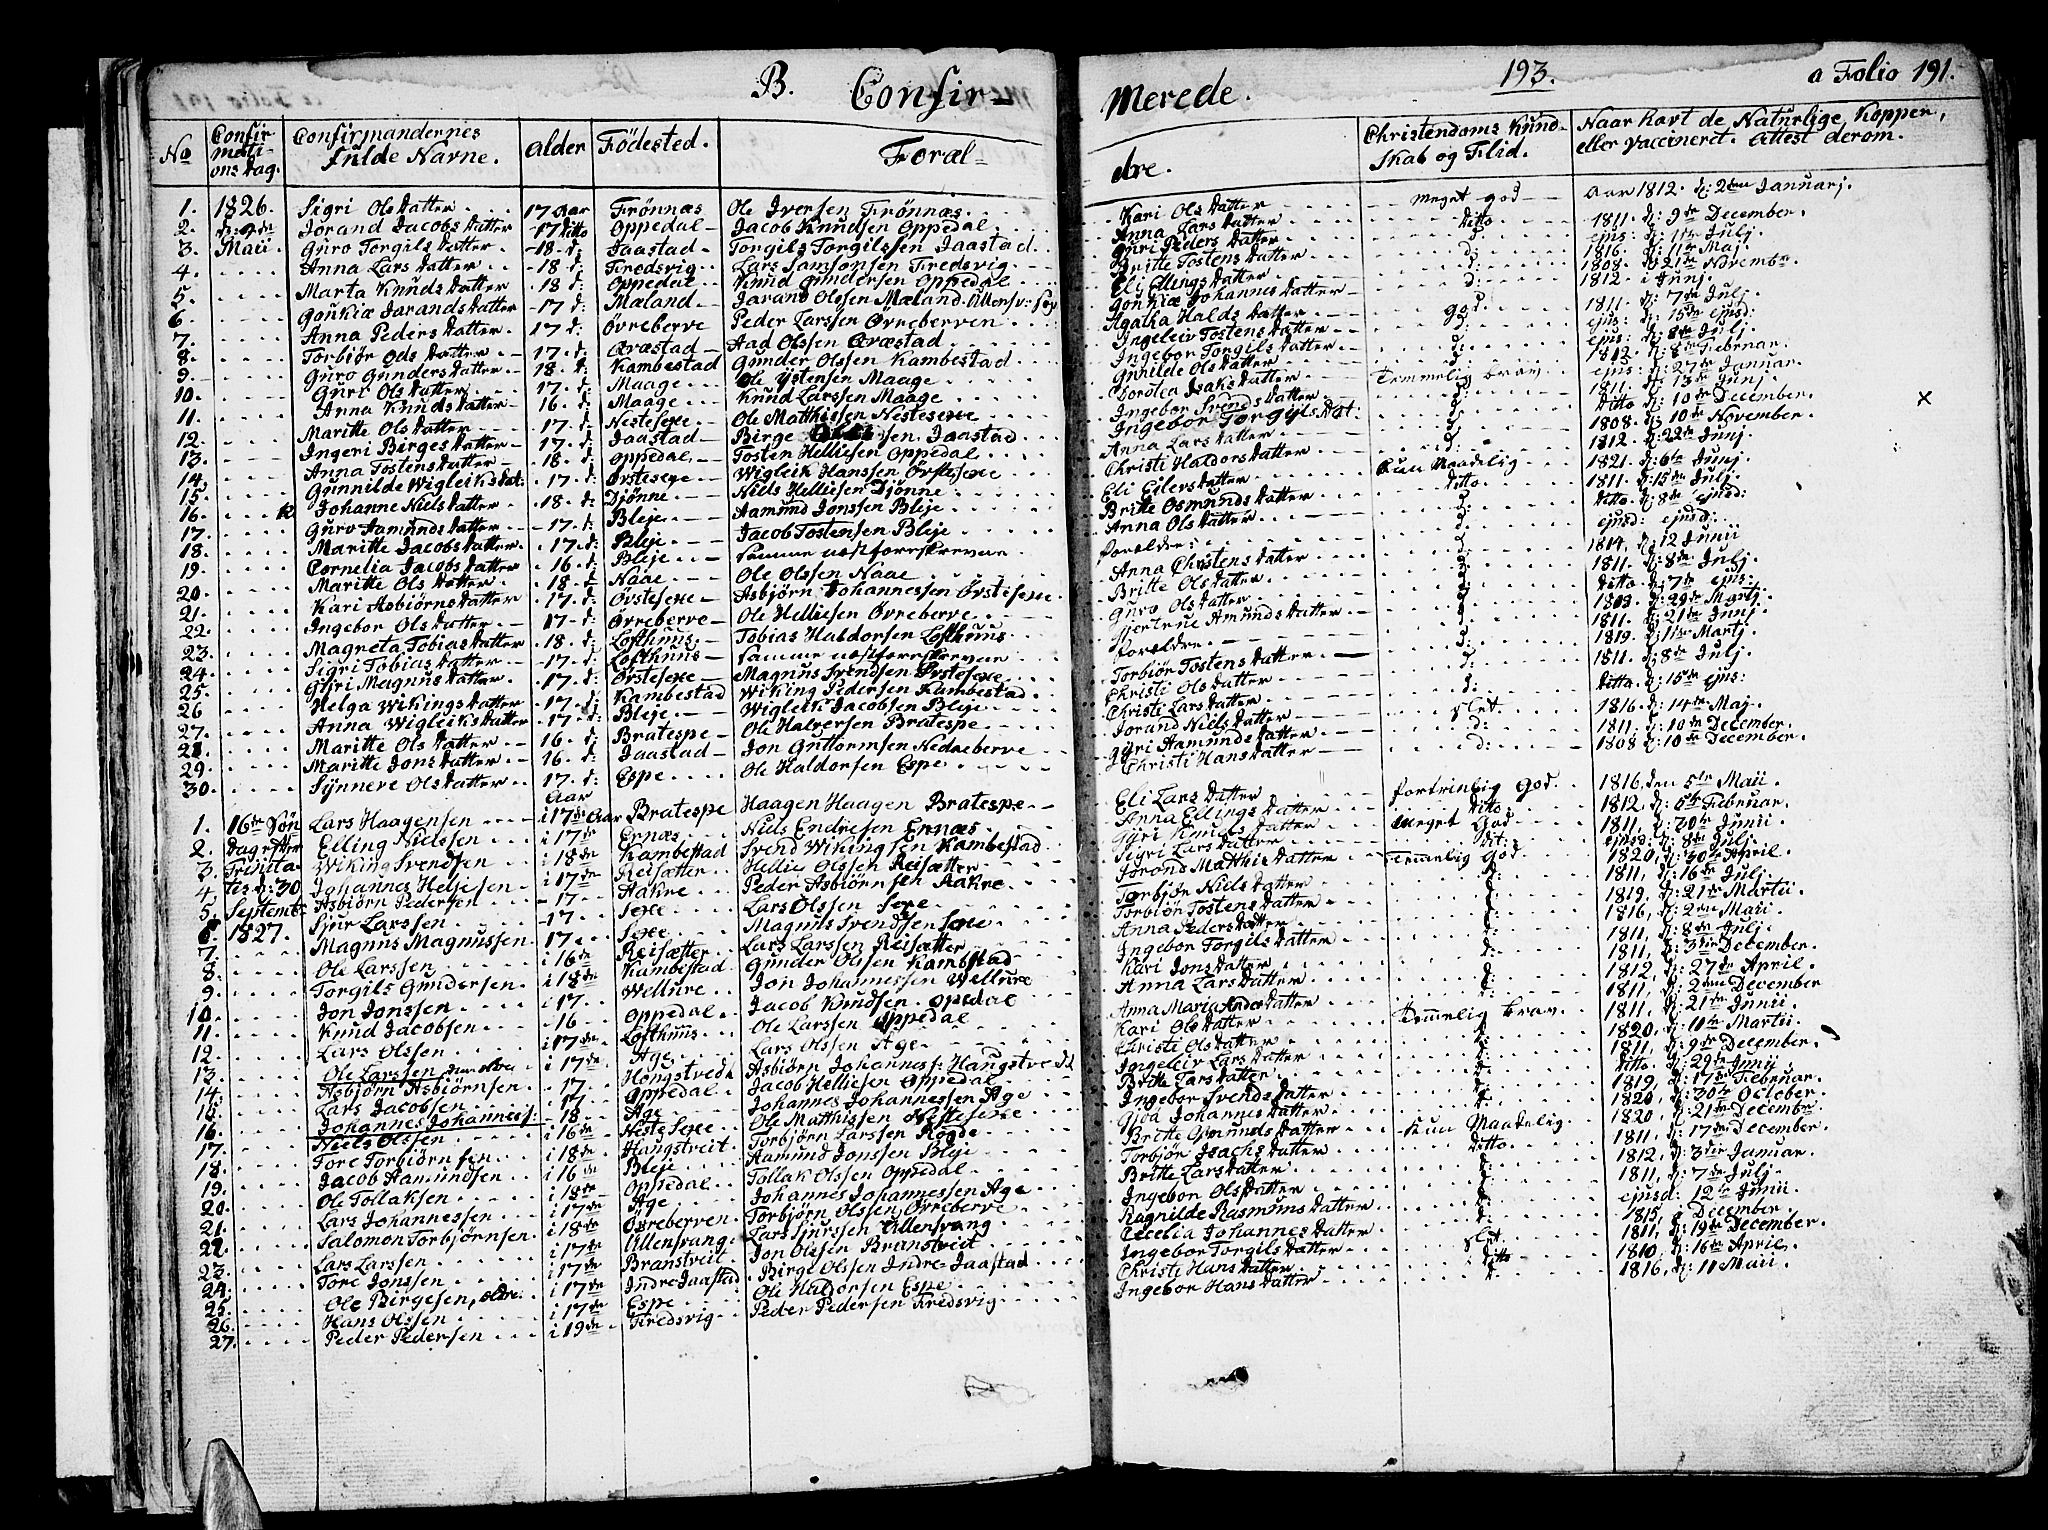 B. Confir- Merede. 193. a Folio 191.
No Confirmationsdag. Confirmandernes fulde Navne. Alder Födested. Foræl- dre. Christendoms Kundskab og Flid. Naar havt de Naturlige Kopper, eller Vaccineret. Attest derom.
1. 1826. Sigri Olsdatter 17 Aar Frönnæs Ole Iversen Frönnæs. Kari Olsdatter meget god Aar 1812. d: 2den Januarj.
2. d: 9de Jorand Jacobsdatter 17 ditto Oppedal Jacob Knudsen Oppedal Anna Larsdatter Ditto 1811. d: 9de December.
3. Maii Guro Torgilsdatter 18. d: Jaastad Torgils Torgilssen Jaastad. Guri Pedersdatter d: ejus: d: 11te Julj.
4. Anna Larsdatter 18. d: Fredsvig Lars Samsonsen Fredsvig. Britte Tostensdatter d: 1816. d: 11te Maj.
5. Marta Knudsdatter 18. d: Oppedal Knud Gundersen Oppedal Eli Ellingsdatter d: 1808. d: 21de Novembr.
6. Gonkiæ Jarandsdatter 17. d: Mæland Jarand Olssen Mæland Gonkiæ Johannesdatter d: 1812. i Junj.
7. Anna Pedersdatter 17. d: Övreberve Peder Larssen Övreberven Agatha Haldsdatter god. 1811. d: 7de Julj.
8. Torbiör Odsdatter 17. d: Aræstad Aad Olssen Aræstad Ingeleiv Tostensdatter d: ejus: d: 15de ejusd:
9. Guro Gundersdatter 18. d: Kambestad Gunder Olssen Kambestad Ingebor Torgilsdatter d: ejus: d: 8de Julj.
10. Guri Olsdatter 17. d: Maage Ole Ystensen Maage Gunilde Olsdatter d: 1812. d: 8de Februar.
11. Anna Knudsdatter 16. d: Maage Knud Larssen Maage Dorotea Isaksdatter Temmelig brav ejus: d: 27de Januar.
12. Maritte Olsdatter 17. d: Nestesexe Ole Matthissen Nestesexe Ingebor Svendsdatter d: 1811. d: 13de Junj.
13. Ingeri Birgesdatter 17. d: Jaastad Birge Olssen Jaastad Ingebor Torgilsdat: d: Ditto d: 10de December. x
14. Anna Tostensdatter 18. d: Oppedal Tosten Helliesen Oppedal Anna Larsdatter d: 1808. d: 10de November.
15. Gunnilde Wigleiksdat: 17. d: Örstesexe Wigleik Hanssen Örstesexe Christi Haldorsdatter d: 1812. d: 22de Junj.
16. Johanne Nielsdatter 18. d: Djönne Niels Helliesen Djönne Eli Eilersdatter Kun Maadelig 1821. d: 6te Junj.
17. Guro Aamundsdatter 17. d: Bleje Aamund Jonssen Bleje Britte Osmundsdatter Ditto 1811. d: 15de Julj.
18. Maritte Jacobsdatter 17. d: Bleje Jacob Tostensen Bleje Anna Olsdatter d: Ditto d: 8de ejusd:
19. Cornelia Jacobsdatter 16. d: Bleje Samme næstforeskrevne forældre: d: ejusd: ejusd:
20. Maritte Olsdatter 18. d: Naae Ole Olssen Naae Anna Christensdatter d: 1814. d: 12 Junii
21. Kari Asbiörnsdatter 17. d: Örstesexe Asbjörn Johannessen Örstesexe. Britte Olsdatter d: 1811. d: 8de Julj.
22. Ingebor Olsdatter 17. d: Övreberve Ole Helliesen Övreberve Guro Olsdatter d: Ditto d: 7de ejus:
23. Magreta Tobiasdatter 18. d: Lofthuus Tobias Haldorsen Lofthuus Gjertrue Amundsdatter d: 1803. d: 29de Martj.
24. Sigri Tobiasdatter 17. d: Lofthuus Samme næstforeskrevne forældre d: 1811. d: 21de Junj.
25. Guri Magnusdatter 17. d: Örstesexe Magnus Svendsen Örstesexe Torbiör Tostensdatter d: 1819. d: 11te Martj.
26 Helga Wikingsdatter 17. d: Kambestad Wiking Pedersen Kambestad Christi Olsdatter d: 1811. d: 8de Julj.
27. Anna Wigleiksdatter 17. d: Bleje Wigleik Jacobsen Bleje Christi Larsdatter d: Ditto. d: 15de ejus:
28. Maritte Olsdatter 16. d: Bratespe Ole Halversen Bratespe Jorand Nielsdatter slet. 1816. d: 14de Maj.
29. Maritte Jonsdatter 16. d: Jaastad Jon Guttormsen Nedreberve Guri Aamundsdatter d: 1811. d: 10de December.
30. Synneve Olsdatter 17. d: Espe Ole Haldorsen Espe Christi Hansdatter d: 1808 d: 10de December.
Aar
1. 16de Sön Lars Haagensen i 17de Aar Bratespe Haagen Haagen Bratespe Eli Larsdatter fortrinlig God. 1816, den 5te Maii.
2. dag efter Elling Nielssen i 17de Ernæs Niels Endresen Ernæs. Anna Ellingsdatter Ditto 1812, d: 5te Februar.
3. Trinita- Wiking Svendsen i 18de Kambestad Svend Wikingsen Kambestad Meget God 1811, d: 30te Junii.
4 tis d: 30 Johannes Heljesen i 17de Reisæter Hellie Olssen Reisætter Sigri Larsdatter dit: ejusd: d: 8de Julj.
5. Septembr: Asbjörn Pedersen 17 Aakre Peder Asbiörnsen Aakre. Jorond Matthisdatter Temmelig God 1820, d: 30te April.
6 1827. Sjur Larssen 17. Sexe Lars Olssen Sexe Torbjör Nielsdatter d: 1811, d: 16de Julj.
7. Magnus Magnussen 17. Sexe Magnus Svendsen Sexe Torbiör Tostensdatter d: 1819, d: 21de Martii.
8. Ole Larssen i 16de Reisætter Lars Larssen Reisætter Anna Pedersdatter d: 1816, d: 2den Maii.
9. Torgils Gundersen i 18de Kambestad Gunder Olssen Kambstad Ingebor Torgilsdatter d: 1811, d: 8de Julj.
10. Jon Jonssen i 17 Wellure Jon Johannessen Wellure Kari Jonsdatter d: 1811, d: 3die December.
11. Knud Jacobsen 16 Oppedal Jacob Knudsen Oppedal Anna Larsdatter d: 1812, d: 27de April.
12. Lars Olssen i 17de Lofthuus Ole Larssen Oppedal Anna Maria Andersdatter d: 1811, d: 2den December
13. Ole Larssen i 17de Age Lars Olssen Age Kari Olsdatter Temmelig brav. 1811, d: 21de Junii.
14. Asbjörn Asbiörnsen 17 Hongstvedt Asbiörn Johanness: Haugstvedt Christi Olsdatter d: 1820, d: 11te Martii.
15. Lars Jacobsen 17 Oppedal Jacob Helliesen Oppedal Ingeleiv Larsdatter d: 1811, d: 9de December.
16. Johannes Johanness: 18 Age Johannes Johannessen Age Britte Larsdatter d: Ditto. d: 29de Junij
17. Niels Olssen i 16de Nestesexe Ole Matthissen Nestesexe Ingebor Svendsdatter d: 1819, d: 17de Februar.
18. Tore Torbiörnsen i 18de Hangstveit Torbjörn Larssen Johannesdatter d: 1820, d: 30te October.
19. Jacob Aamundsen i 16de Bleje Aamund Jonssen Bleje Britte Osmundsdatter Kun Maadelig. 1820 d: 21de December
20. Ole Tollaksen i 18de Oppedal Tollak Olssen Oppedal Torbjör Isachsdatter Ditto. 1811, d: 17de December.
21. Lars Johannessen i 17de Age Johannes Johannessen Age Britte Larsdatter d: 1812, d: 3die Januar.
22. Salomon Torbjörnsen. i 18de Övreberven Torbjörn Olssen Övreberve Ingebor Olsdatter d: 1811, d: 7de Julj.
23. Lars Larssen i 17de Ullensvang Lars Sjurssen Ullensvang Ragnilde Rasmusdatter d: ejusd: 12te Junii.
24. Tore Jonssen i 17de Branstveit Jon Olssen Branstveit Cecelia Johannesdatter d: 1815, i December.
25. Ole Birgesen, Indre Jaastad Birge Olssen Indre Jaastad Ingebor Torgilsdatter slet. 1811, d: 19de December.
26. Hans Olssen i 17de Espe Ole Haldorsen Espe Christi Hansdatter Ditto 1810, d: 16de April.
27. Peder Pedersen i 19de Fredsvig Peder Pedersen Fredsvig Ingebor Hansdatter d: 1816, d: 11 Maii.